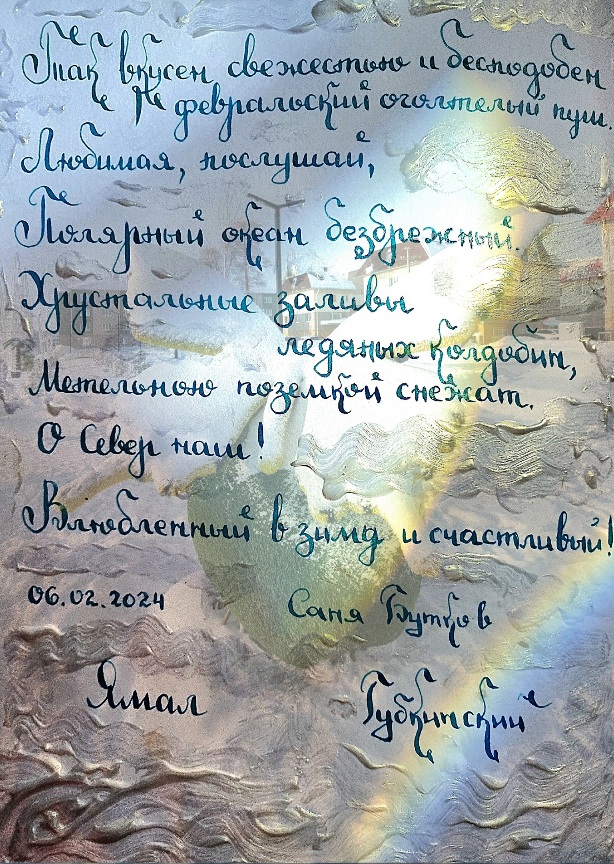 Так вкусен свежестью и бесподобен
февральский оголтелый пуш.
Любимая, послушай,
Полярный океан безбрежный.
Хрустальные заливы
ледяных колдобин,
Метельною поземкой снежат.
О Север наш!
Влюбленный в зиму и счастливый!
06.02.2024 Саня Бутков
Ямал Губкинский